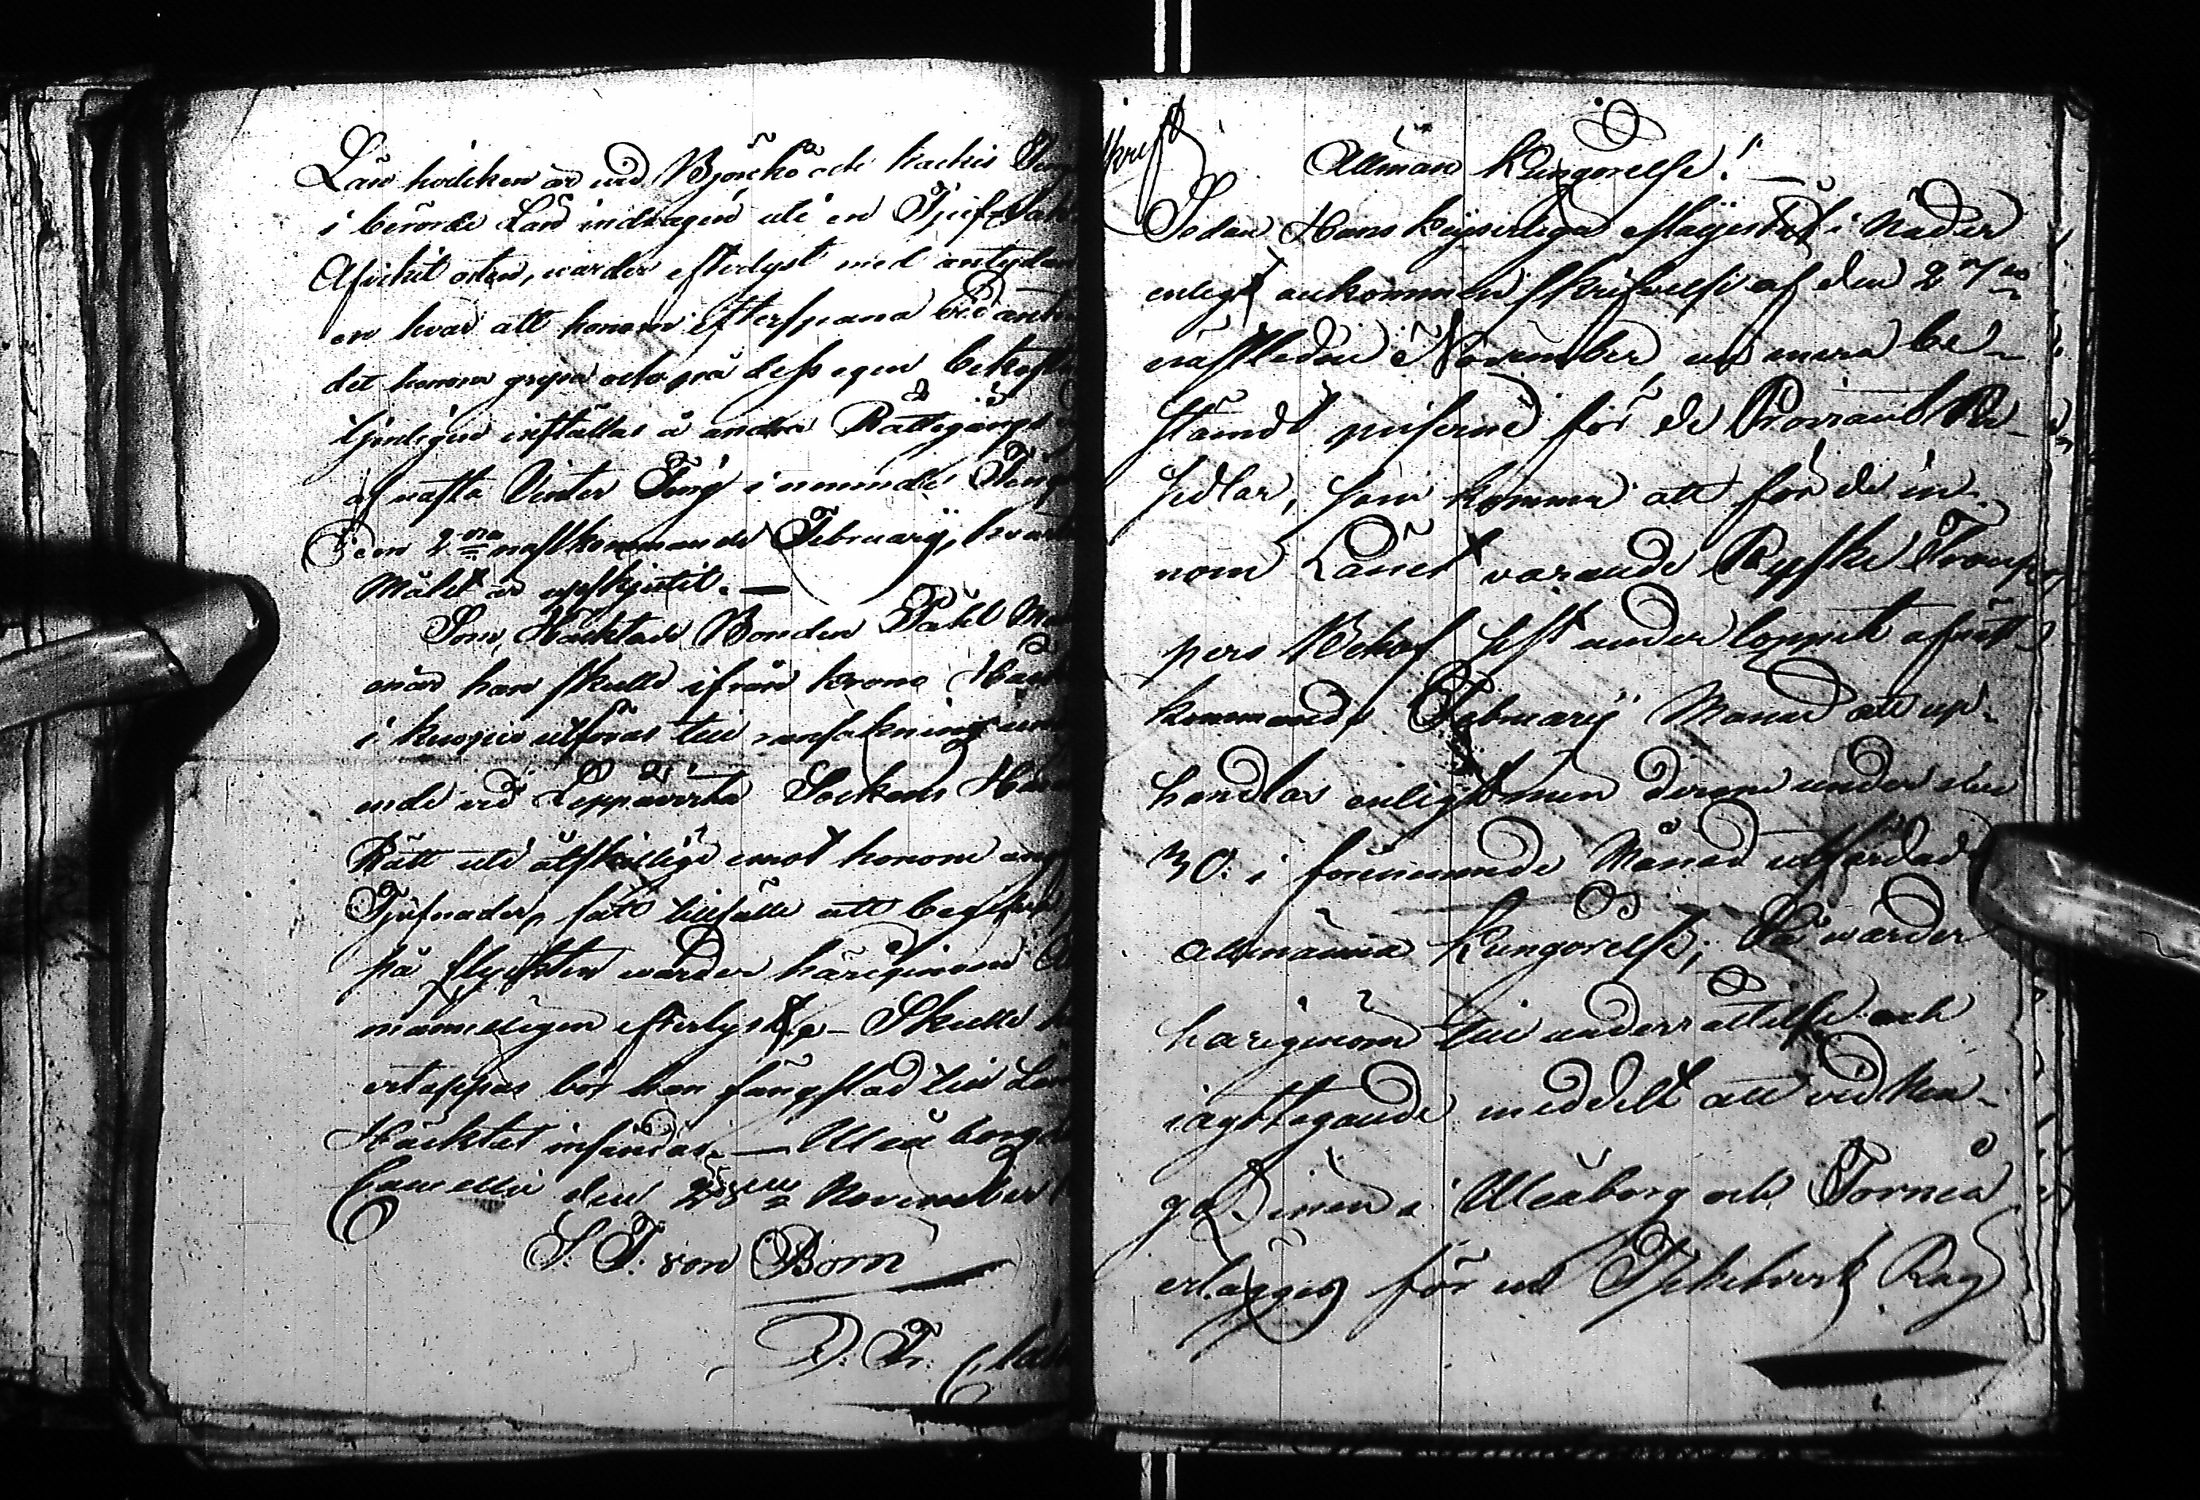 Län hvilcken är vid Björckö och kackis Ting
i berörde Län indragen uti en Tjufs Sak
Afvikit orten, warder efterlyst med antydan
en hvar att honom efterspana vid ant
det honom gripa och på dess egen bekost
tjenligen inställas å andra Rättegångs
af nästa Vinter Ting i nämnde Ting
den 2dra nästkommande February, hvar
Målet är uppskjutit. —
Som Häktade Bonden Påhl
när han skulle ifrån krono Häck
i kuopio utföras till ransakning
ende vid Leppävirta Sockens Här
Rätt uti åtskillige emot honom ang
Tjufnader, fått tillfälle att begifva
på flyckten warder härigenom
manneligen efterlyst, — Skulle h
ertappas bör han fängslad till Län
Häcktet insändas. — Uleåborgs
Cancellie den 28de November
S. F. von Born
D. Fr.
skrift
Allmän kungörelse! —
Sedan Hans Kejserliga Majestät i Nåder
enligt ankommen skrifvelse af den 27de
nästleden November un mera be-
stämdt priserne för de Proviant Per-
sedlar, som komma att för de in-
nom Länet varande Ryske Troup-
pers Behof sist under loppet af näst-
kommande February Månad att up-
handlas enligt min derom under den
30. i förenämnde Månad utfärdade
allmänna Kungörelse; Så warder
härigenom till underrättelse och
iagttagande meddelt att vid Ma-
gazinen i Uleåborg och Torneå
erlägges för ett Tschetvert Råg